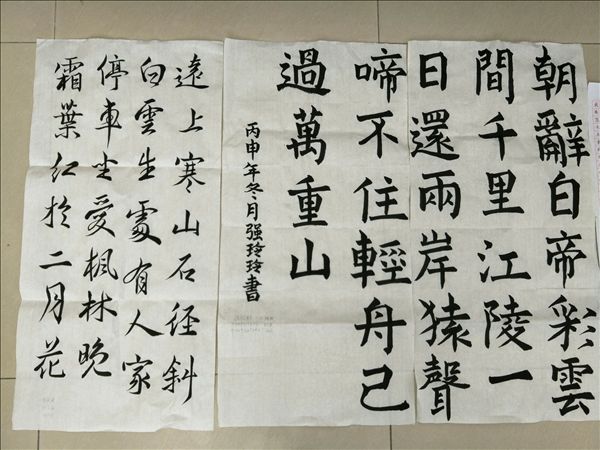 朝辭白帝彩雲
間千里江陵一
日還兩岸猿聲
啼不住輕舟己
過萬重山
丙申年冬月强玲玲書
遠上寒山石径斜
白雲生處有人家
停車坐愛楓林晚
霜葉红於二月花